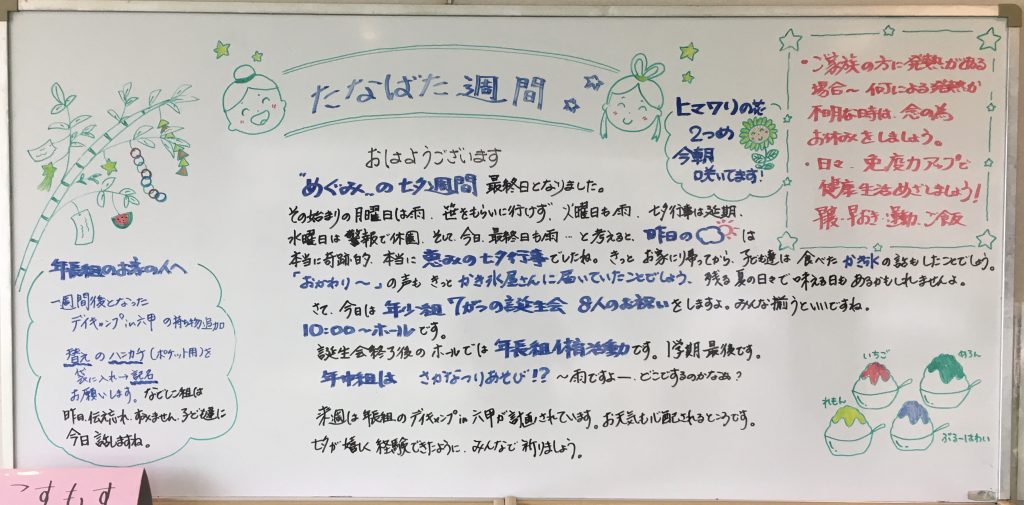 たなばた週間
おはようございます
"めぐみ"の七夕週間 最終日となりました。
その始まりの月曜日は雨、笹をもらいに行けず、火曜日も雨、七夕行事は延期、
水曜日は警報で休園、そして、今日、最終日も雨…と考えると、昨日の は
本当に奇跡的、本当に恵みの七夕行事でしたね。きっとお家に帰ってから、子ども達は食べたかき氷の話もしたことでしょう。
「おかわり〜」の声もきっとかき氷屋さんに届いていたことでしょう、残る夏の日々で味える日もあるかもしれませんよ。
さて、今日は年少組7がつの誕生会 8人のお祝いをしますよ。みんな揃うといいですね。
10:00〜ホールです。
誕生会終了後のホールでは年長組体育活動です。1学期最後です。
年中組は さかなつりあそび!? 〜雨ですよー、どこでするのかなぁ?
来週は年長組のデイキャンプin六甲が計画されています。お天気も心配されるところです。
七夕が嬉しく経験できたように、みんなで祈りましょう。
ヒマワリの花
2つめ
今朝
咲いてます!
・ご家族の方に発熱がある
場合〜何による発熱か
不明な時は、念の為
お休みをしましょう。
・日々、免疫力アップと
健康生活めざしましょう!
早おき・運動、ご飯
年長組のお家の人へ
一週間後となった
デイキャンプin六甲の持ち物追加
替えのハンカチ(ポケット用)を
袋に入れ→記名
お願いします。なでしこ組は
昨日、伝え忘れ、すみません。子ども達に
今日話しますね。
いちご
めろん
れもん
ぶるーはわい
つすもす